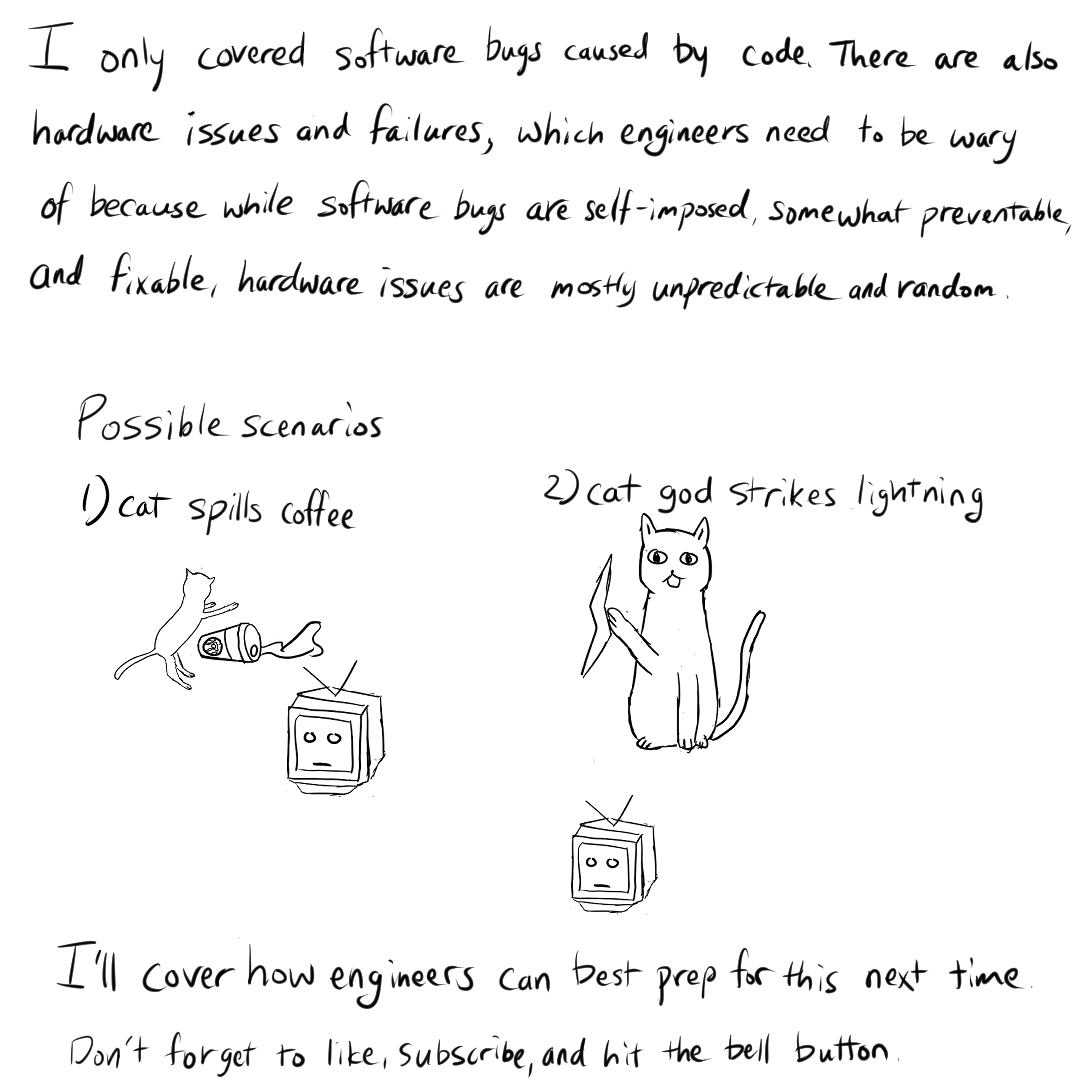 I only covered software bugs caused by code. There are also
hardware issues and failures, which engineers need to be wary
of because while software bugs are self-imposed, somewhat preventable,
and fixable, hardware issues are mostly unpredictable and random.
Possible scenarios
1) cat spills coffee
2) cat god strikes lightning
I'll cover how engineers can best prep for this next time.
Don't forget to like, subscribe, and hit the bell button.